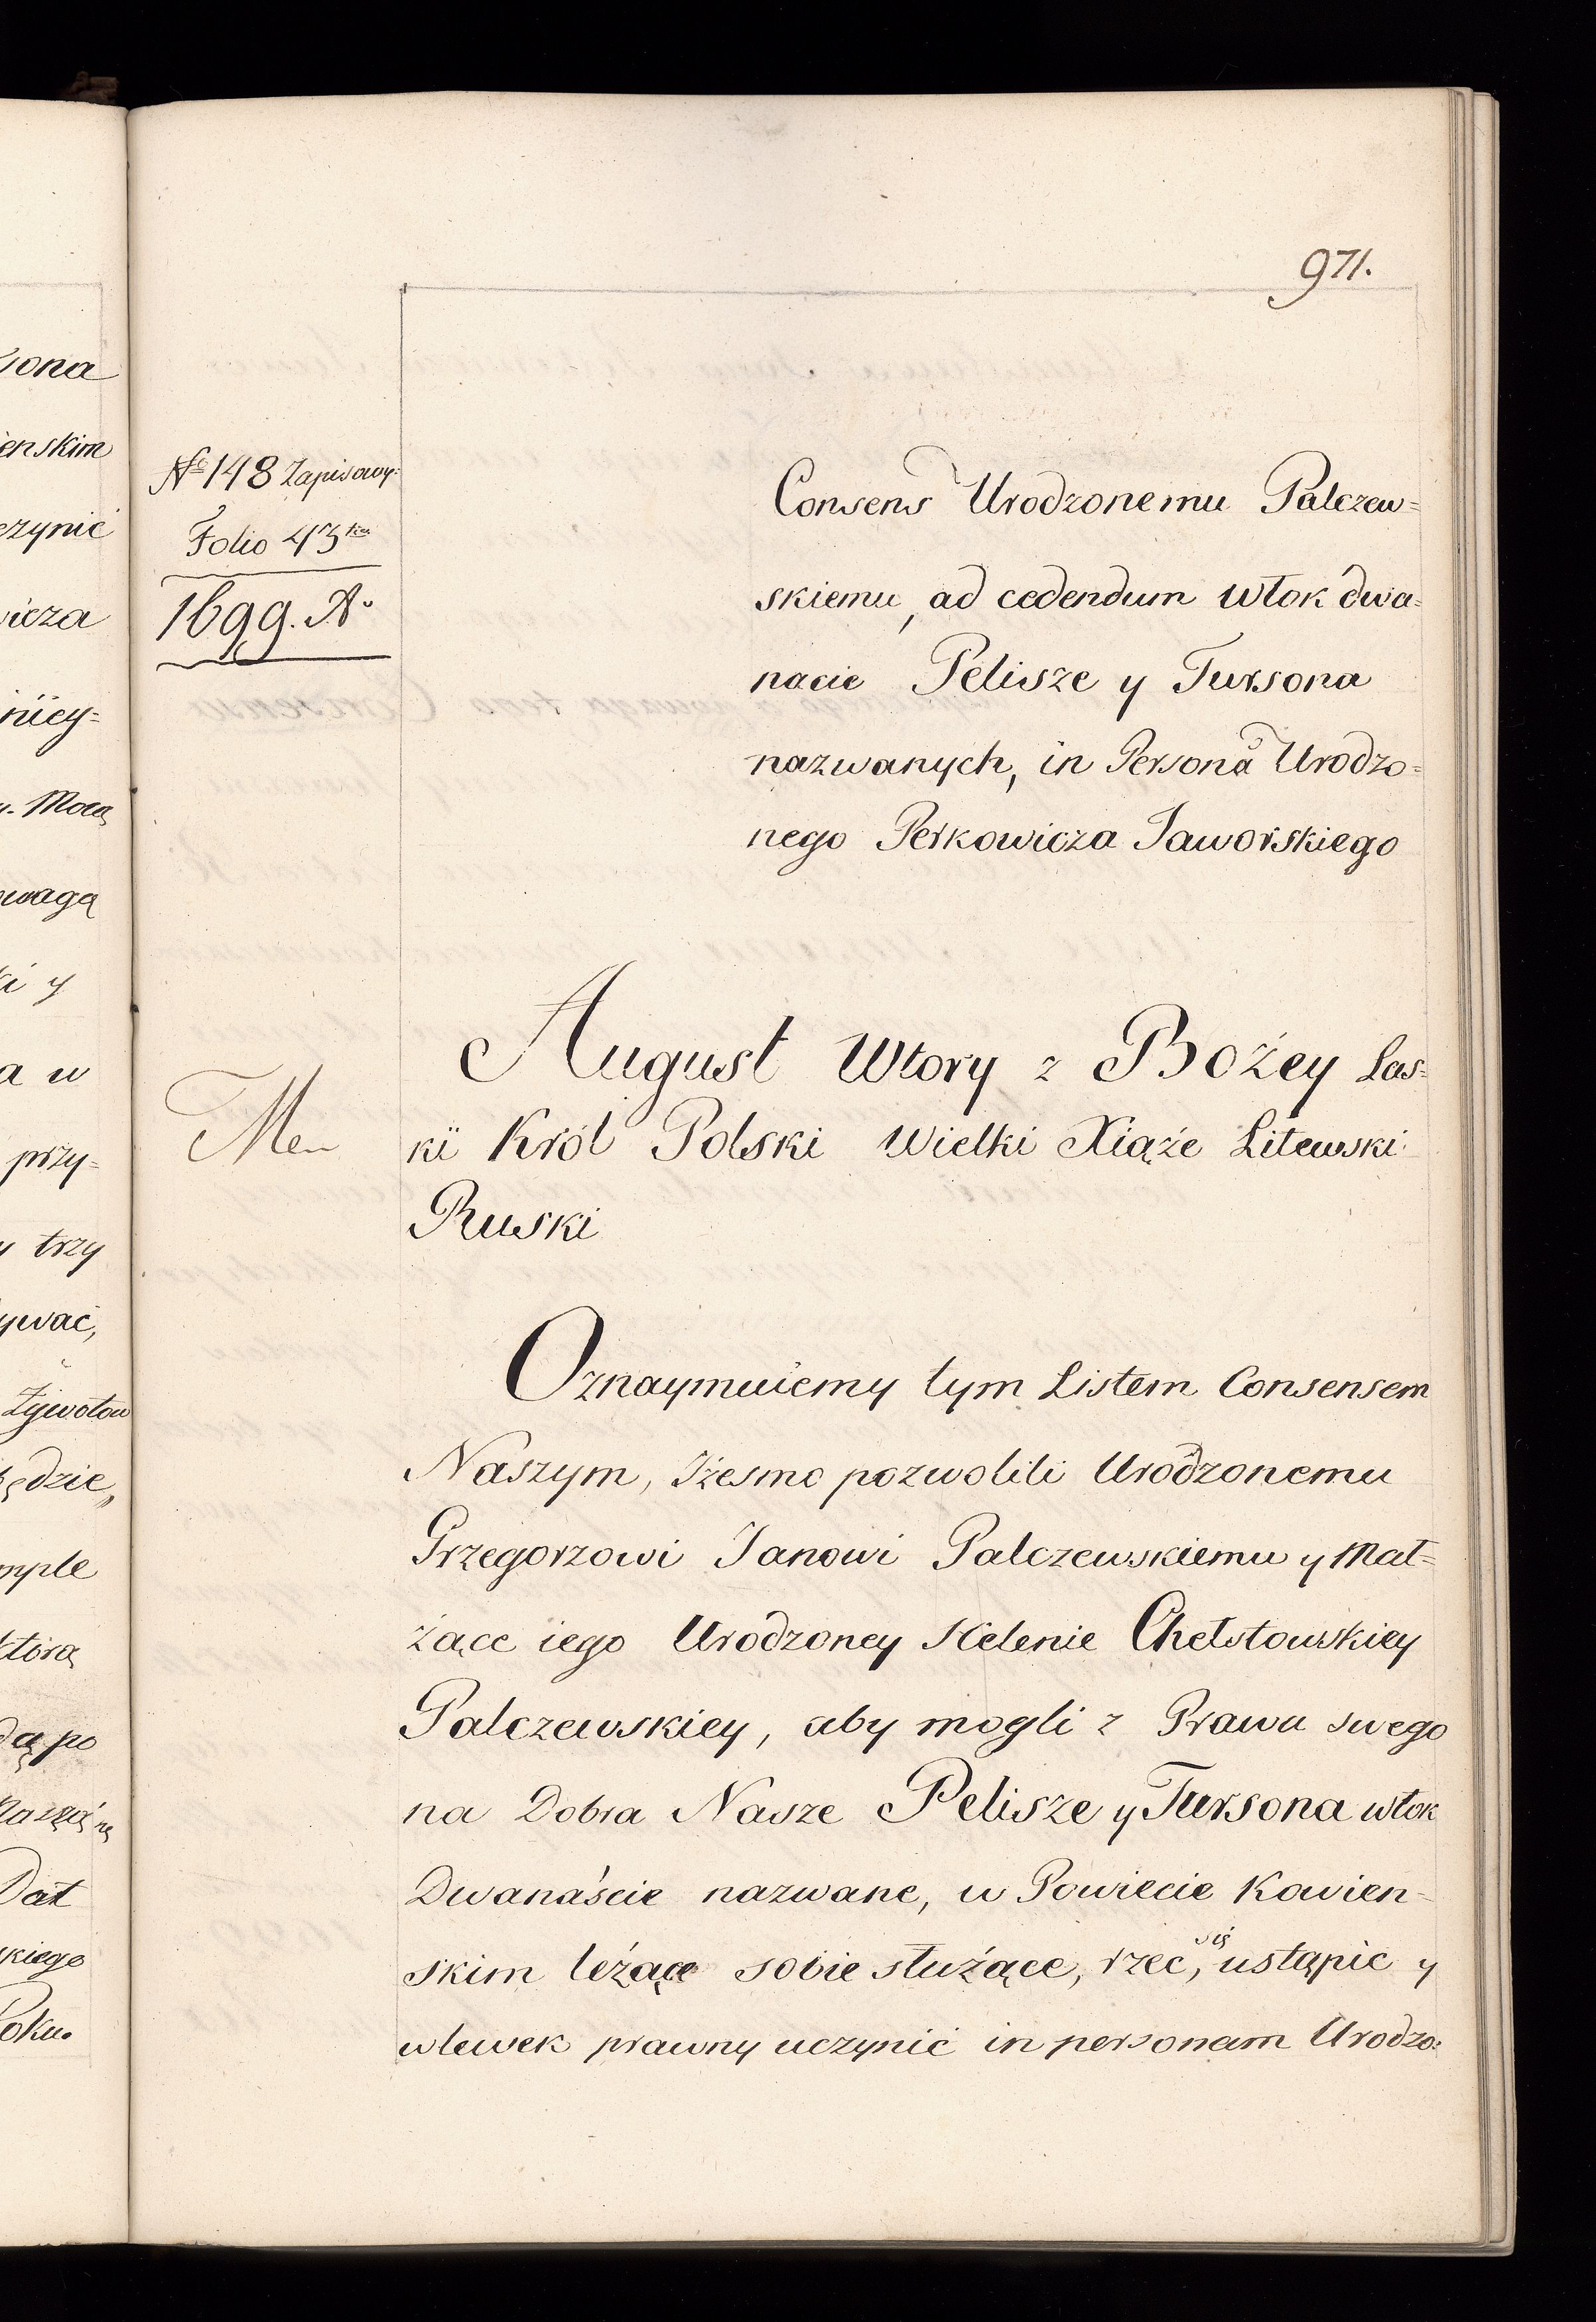 971.
№ 148 Zapisowy:
Folio 43
1699. Aº
Consens Urodzonemu Palczew=
skiemu, ad cedendum Włok dwa=
nacie Pelisze y Tursona
nazwanych, in Persona Urodzo=
nego Perkowicza Jaworskiego
August Wtory z Bożey Łas=
kii Król Polski Wielki Xiąże Litewski
Ruski
Oznaymuiemy tym Listem Consensem
Naszym, Iżesmo pozwolili Urodzonemu
Grzegorzowi Janowi Palczewskiemu y Mał=
żące iego Urodzoney Helenie Chełstowskiey
Palczewskiey, aby mogli z Prawa swego
na Dobra Nasze Pelisze y Tursona włok
Dwanaście nazwane, w Powiecie Kowien=
skim leżące sobie służące, rzec, się ustąpic y
wlewek prawny uczynić in personam Urodzo:
sona
ienskim
czynić
wicza
y. Mocą
owagą
ki y
a w
przy=
y trzy
ywać,
Zywotow
ędzie,
mple
którą
dą po
Dat
skiego
Roku.